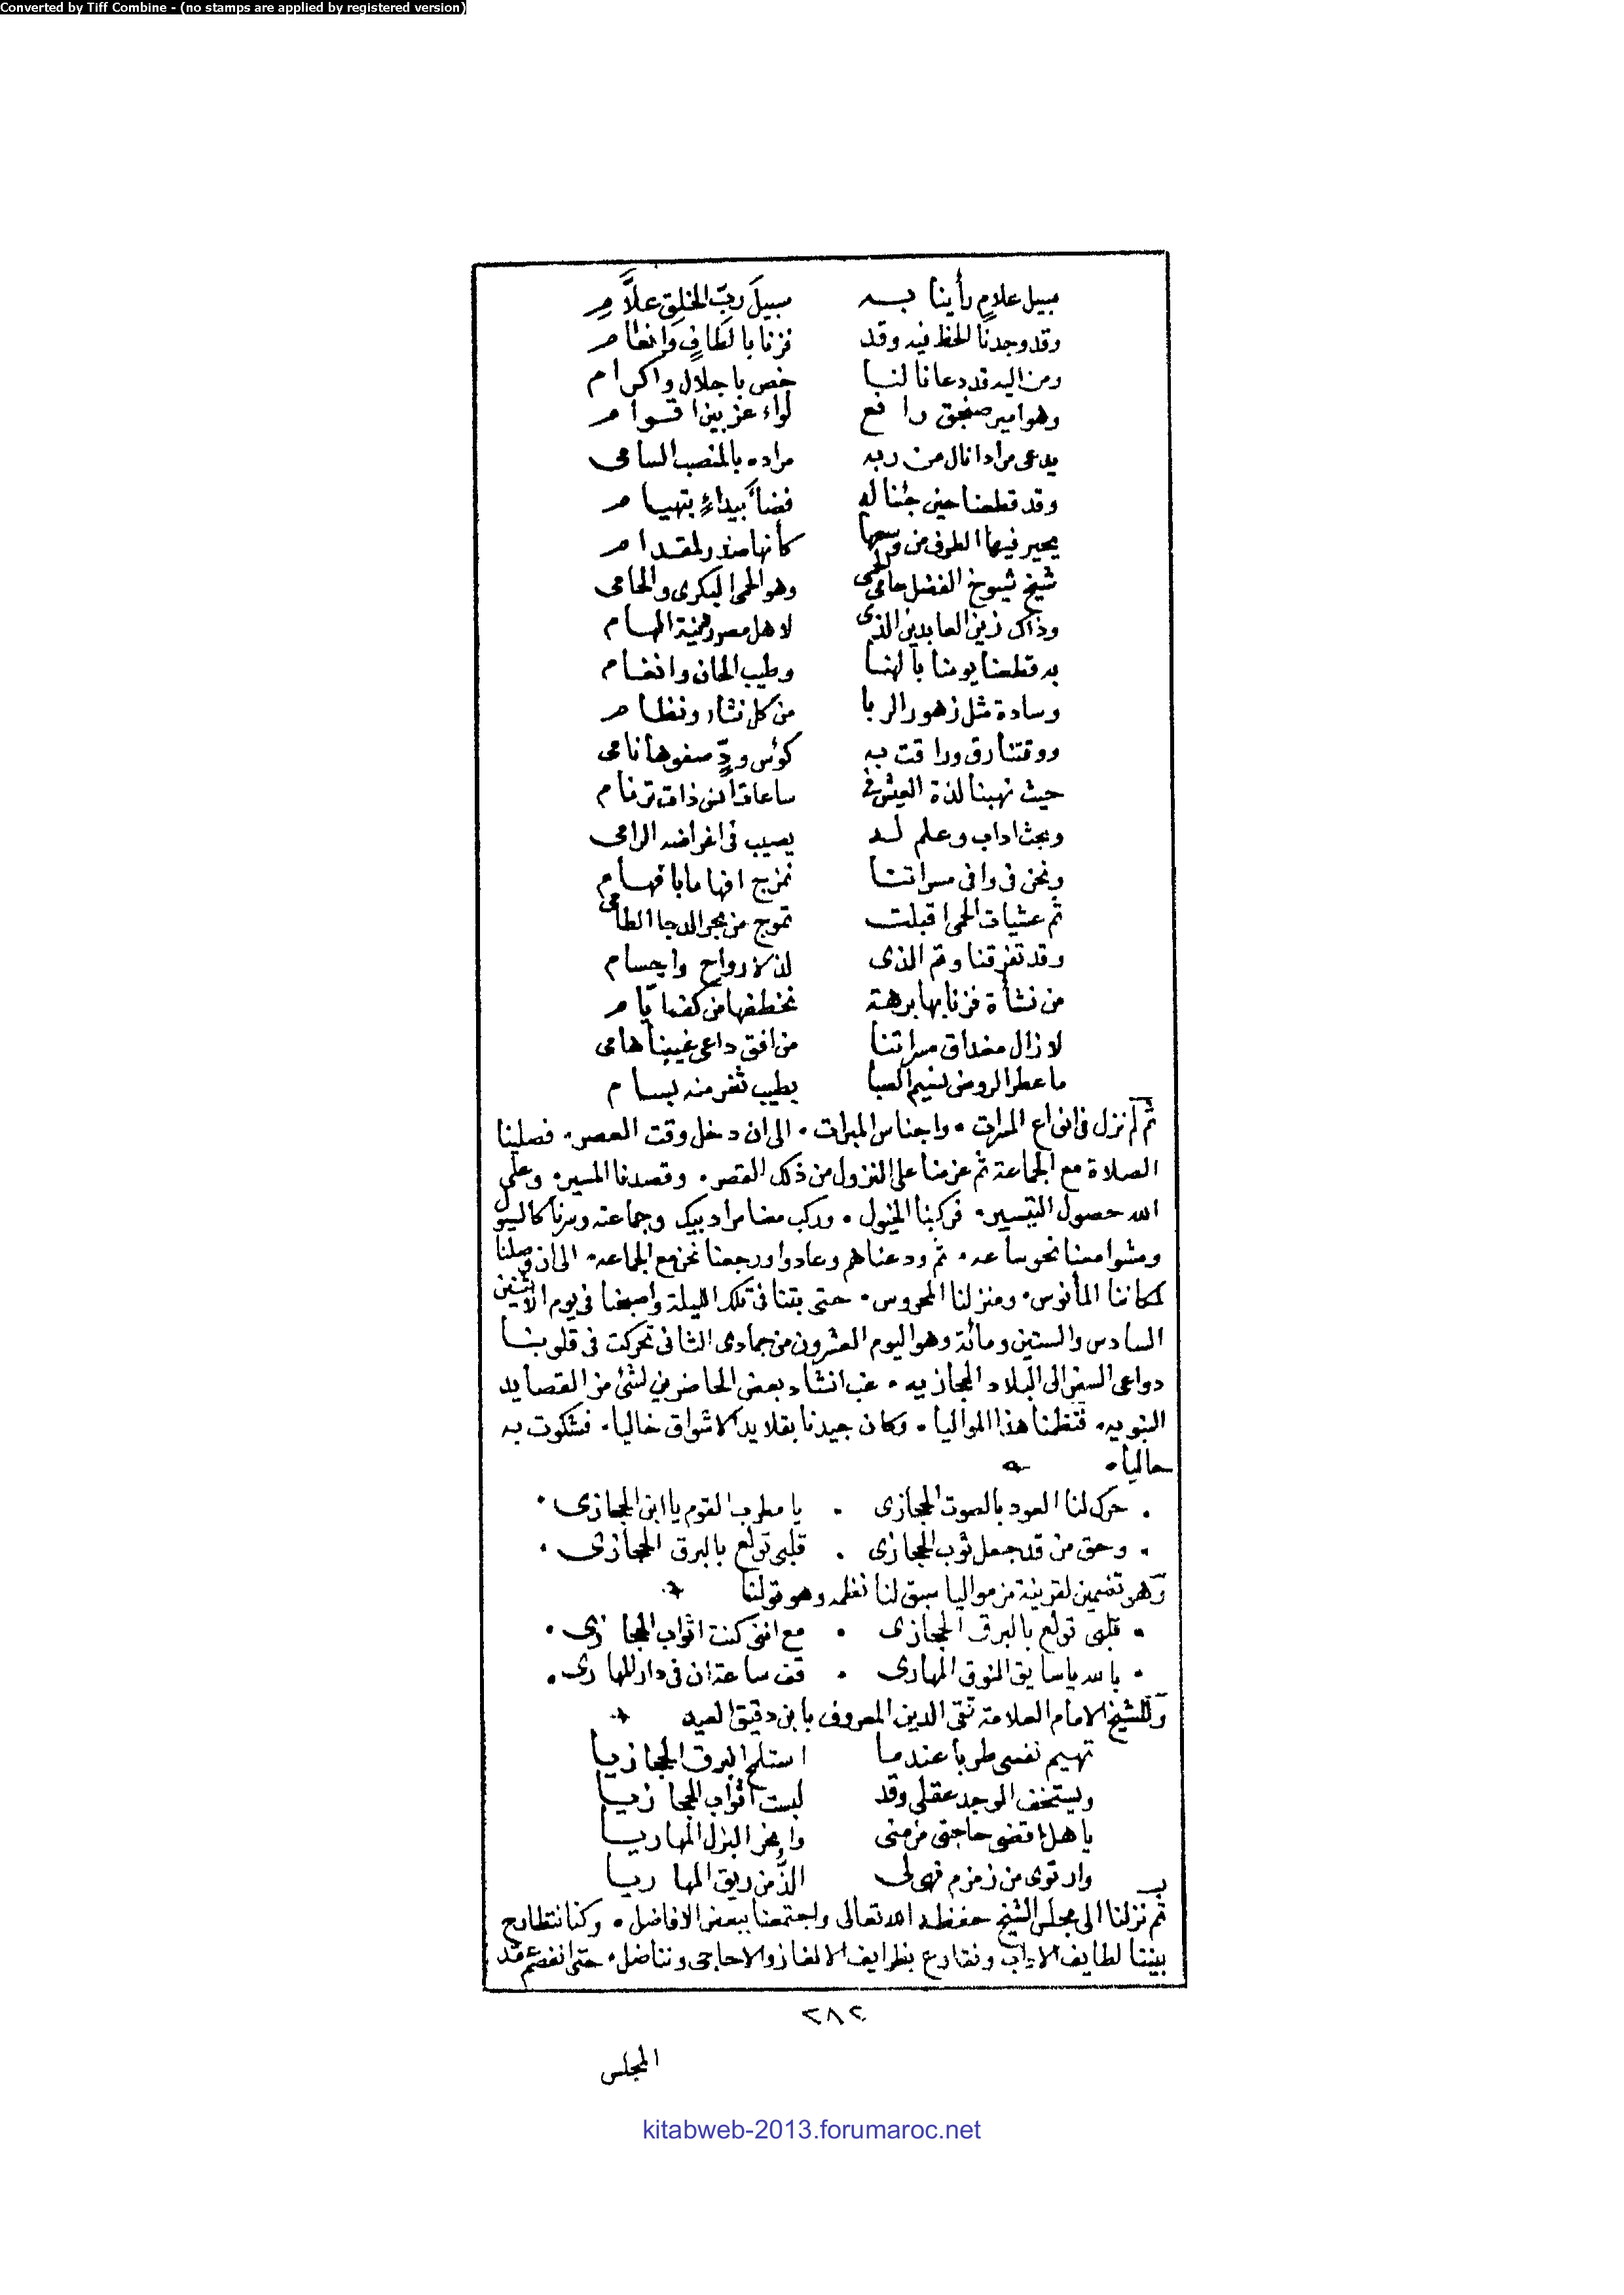 Converted by Tiff Combine - (no stamps are applied by registered version)
سبيل علامٍ رأينا به سبيلَ ربِّ الخلقِ علاَّمِ
وقد وجدنا للحظ فيه وقد فزنا بالطافٍ وانعام
ومن اليه قد دعانا لنا خص باجلال واكرام
وهو امير صنجق رافع لواء عز بين اقوام
يدعى مرادا نال من ربه مراده بالمنصب السامى
وقد قطعنا حين جئنا له فضاء بيداءٍ بتهيام
يحير فيها الطرف من وسعها كأنها صدر لمقدام
شيخ شيوخ الفضل حامى الحمى وهو الحمى البكرى والحامى
وذاك زين العابدين الذى لاهل مصر
به قطعنا يومنا بالهنا وطيب الحان وانغام
وسادة مثل زهور الربا من كل نثار ونظام
ووقتنا رق وراقت به كؤس ودٍّ صفوها نامى
حيث نهبنا لذة العيش فى ساعات انس ذات ترنام
وبحث اداب وعلم له يصيب فى اغراضه الرامى
ونحن فى وافى مسراتنا نمزج افهاما بافهام
ثم عشيات الحمى اقبلت تموج من بحر الدجا الطامى
وقد تفرقنا وتم الذى لذ لارواح واجسام
من نشأة فزنا بها برهة نخطفها من كف ايام
لا زال مغداق مسراتنا من افق داعى غيبنا هامى
ما عطر الروض نسيم الصبا بطيب ثغر منه بسام
ثم لم نزل فى انواع المسرات واجناس المبرات الى ان دخل وقت العصر فصلينا
الصلاة مع الجماعة ثم عزمنا على النزول من ذلك القصر وقصدنا المسير وعلى
الله حصول التيسير فركبنا الخيول وركب معنا مراد بيك وجماعته وسرنا كالسيول
ومشوا معنا نحو ساعه ثم ودعناهم وعادوا ورجعنا نحن مع الجماعه الى ان وصلنا
لمكاننا المأنوس ومنزلنا المحروس حتى بتنا فى تلك الليلة واصبحنا فى يوم الاثنين
السادس والستين ومائة وهو اليوم العشرون من جمادى الثانى تحركت فى قلوبنا
دواعى السفر الى البلاد الحجازيه عند انشاد بعض الحاضرين لشئ من القصايد
النبويه فنظمنا هذا المواليا وكان جيدنا بقلايد الاشواق خاليا فشكوت به
حاليا
حرك لنا العود بالصوت الحجازى يا مطرب القوم يا ابن الحجازى
وحق من قد جعل ثوب الحجازى قلبى تولع بالبرق الحجازى
وهو تضمين لقرينة من مواليا سبق لنا نظمه وهو قولنا
قلبى تولع بالبرق الحجازى مع اننى كنت اثواب الحجا زى
بالله يا سايق النوق المهارى قف ساعة ان فى دار المها رى
وللشيخ الامام العلامة تقى الدين المعروف بابن دقيق العيد
تهيم نفسى طربا عندما استلمح البرق الحجازيا
ويستخف الوجد عقلى وقد لبست اثواب الحجا زيا
يا هل اقضى حاجتى من منى وانحر البزل المهاريا
وارتوى من زمزم فهى لى الذُّ من ريق المها ريا
ثم نزلنا الى مجلس الشيخ حفظه الله تعالى واجتمعنا ببعض الافاضل وكنا نتطارح
بيننا لطايف الاداب ونقارع بظرايف الالغاز والاحاجى ونناضل حتى انفصم عقد
٢٨٢
المجلس
kitabweb-2013.forumaroc.net